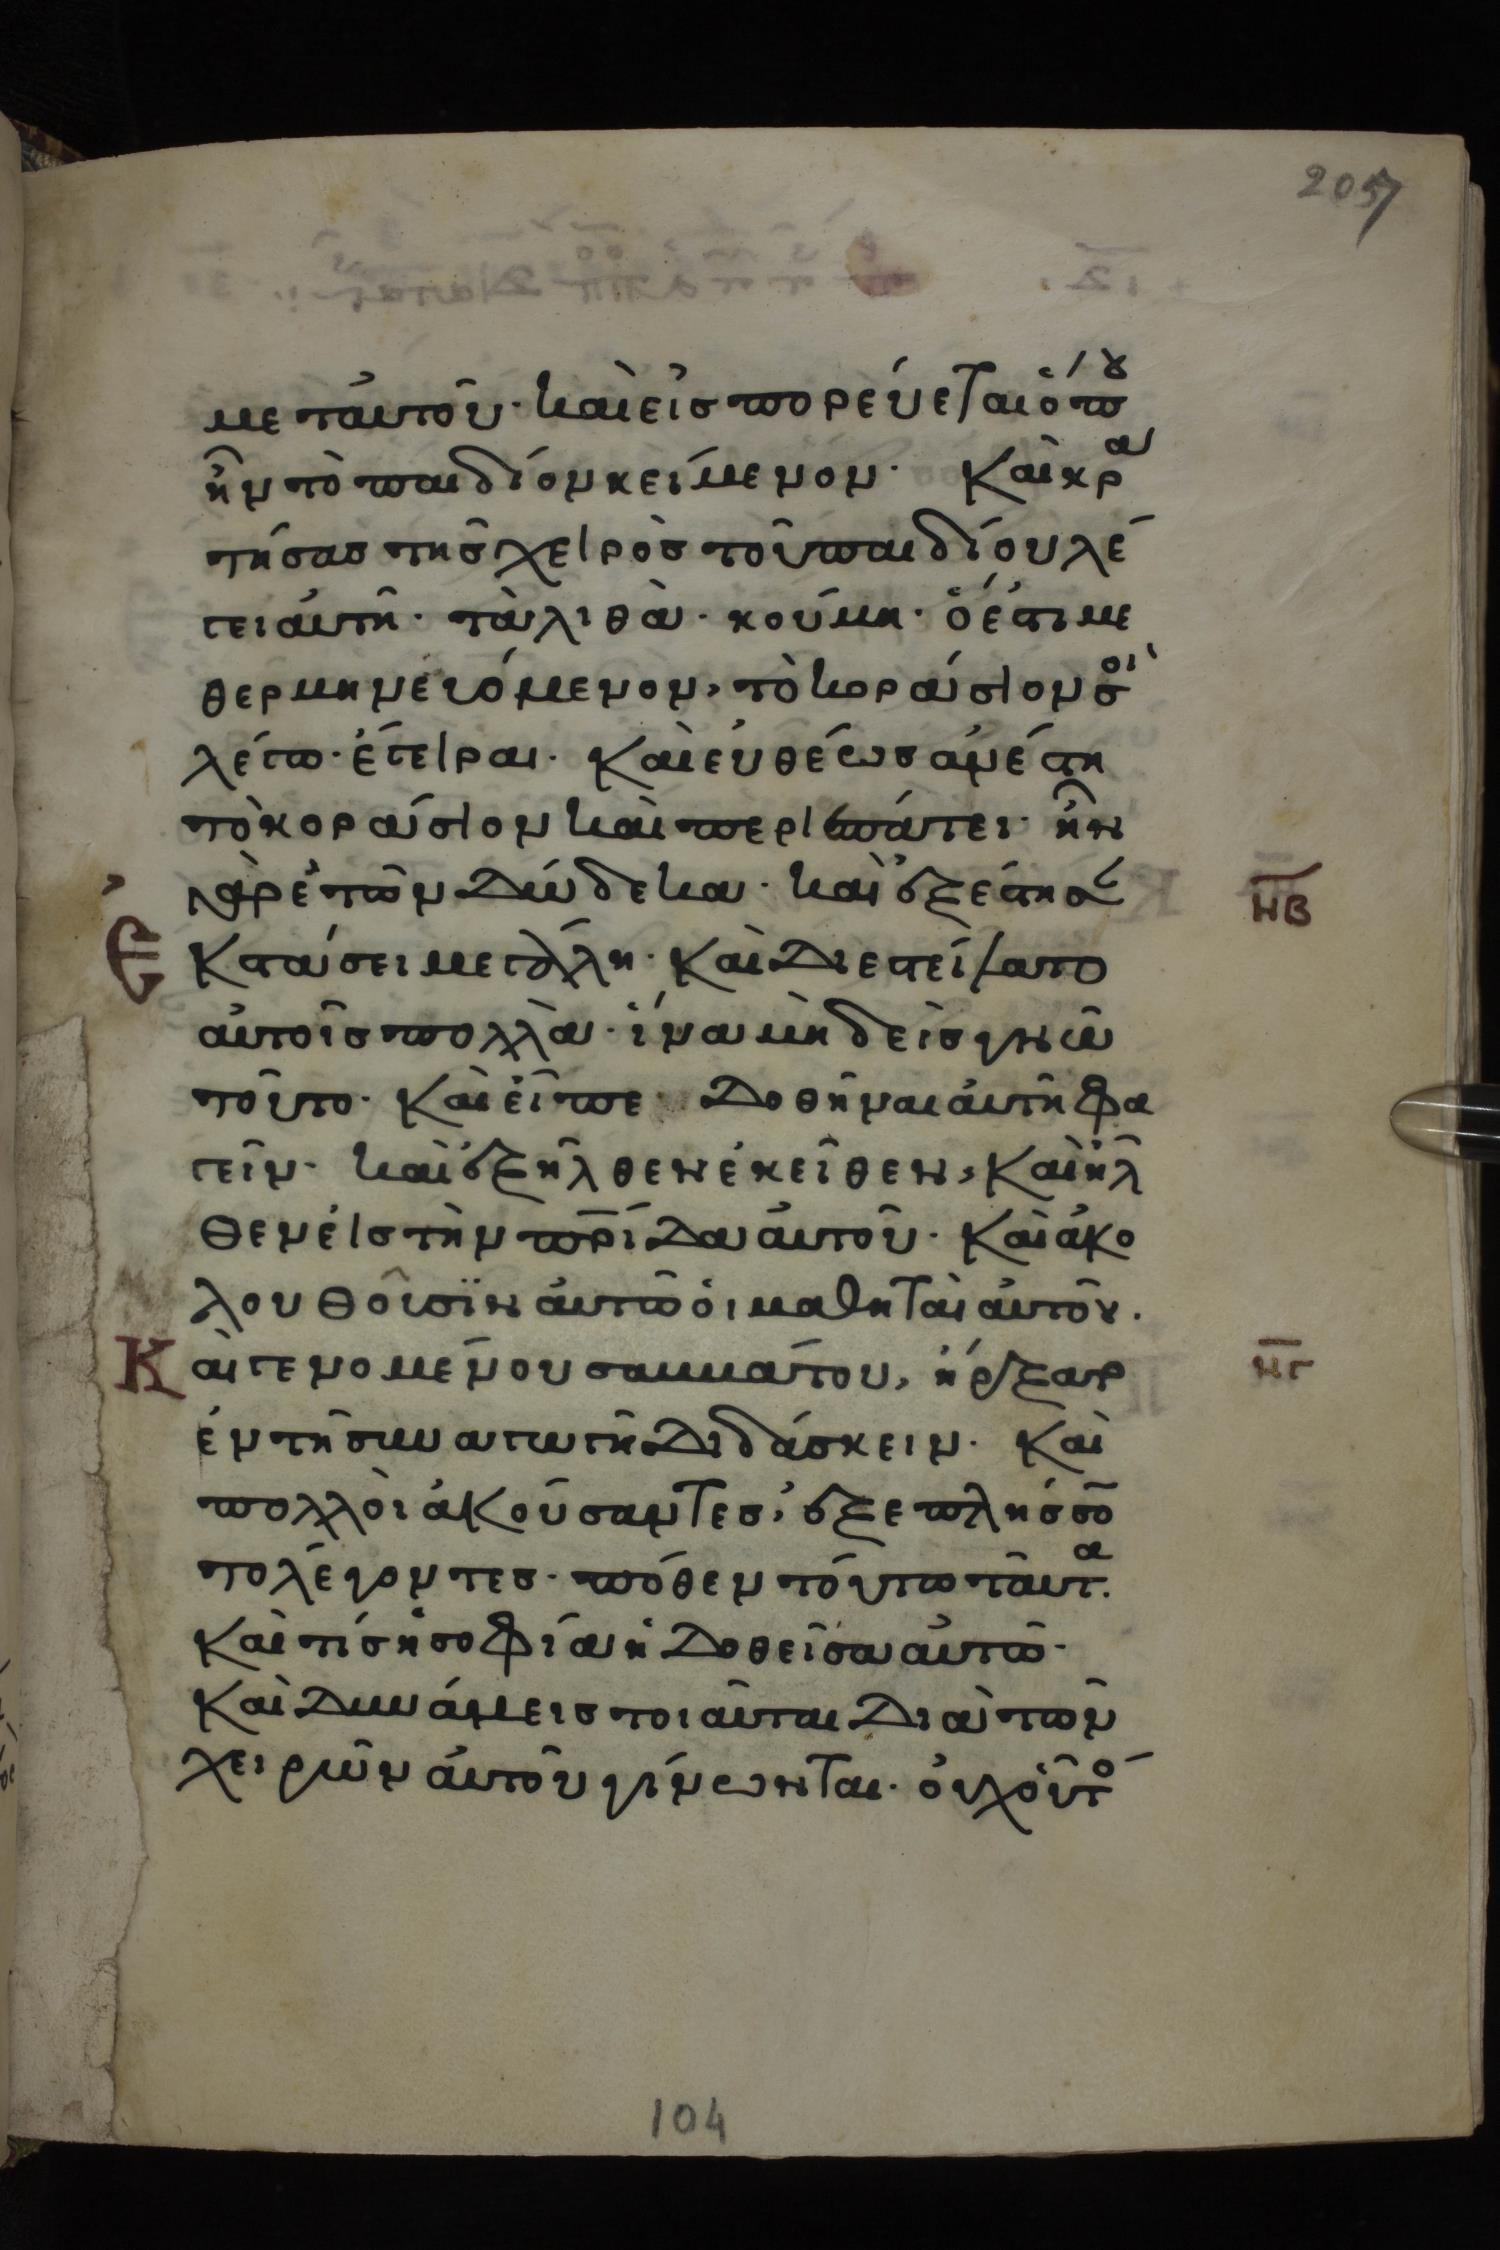 205 7
μετ αὐτοῦ· καὶ εἰσπορεύεται ὅπου
ἦν τὸ παιδίον κείμενον· Καὶ κρα
τήσας τῆς χειρὸς τοῦ παιδίου λέ
γει αὐτῆ· ταλιθὰ· κούμη· ὅ ἐστι με
θερμηνευόμενον, τὸ κοράσιον σοὶ
λέγω· ἔγειραι· Καὶ εὐθέως ἀνέστη
τὸ κοράσιον καὶ περιπάτει· ἦν
γὰρ ἐτῶν δώδεκα· καὶ ἐξέστησ(αν)
Ἐκστάσει μεγάλη· Καὶ διεστείλατο
αὐτοῖς πολλὰ· ἵνα μὴδεὶς γνῶ
τοῦτο· Καὶ εἶπε· δοθῆναι αὐτῆ φα
γεῖν· καὶ ἐξῆλθεν ἐκεῖθεν, Καὶ ἦλ
θεν εἰς τὴν πρίδα αὐτοῦ· Καὶ ἀκο
λουθοῦσϊν αὐτῶ οἱ μαθηταὶ αὐτοῦ.
Καὶ γενομένου σαββάτου, ἤρξατ
ἐν τῆ συναγωγῆ διδάσκειν· Καὶ
πολλοὶ ἀκούσαντες, ἐξεπλήσσο
το λέγοντες· πόθεν τούτω ταῦτα.
Καὶ τίς ἡ σοφία ἡ δοθεῖσα αὐτῶ·
Καὶ δυνάμεις τοιαῦται διὰ τῶν
χειρῶν αὐτοῦ γίνωνται· οὐχ οὗτο
ΝΒ
ΝΓ
104